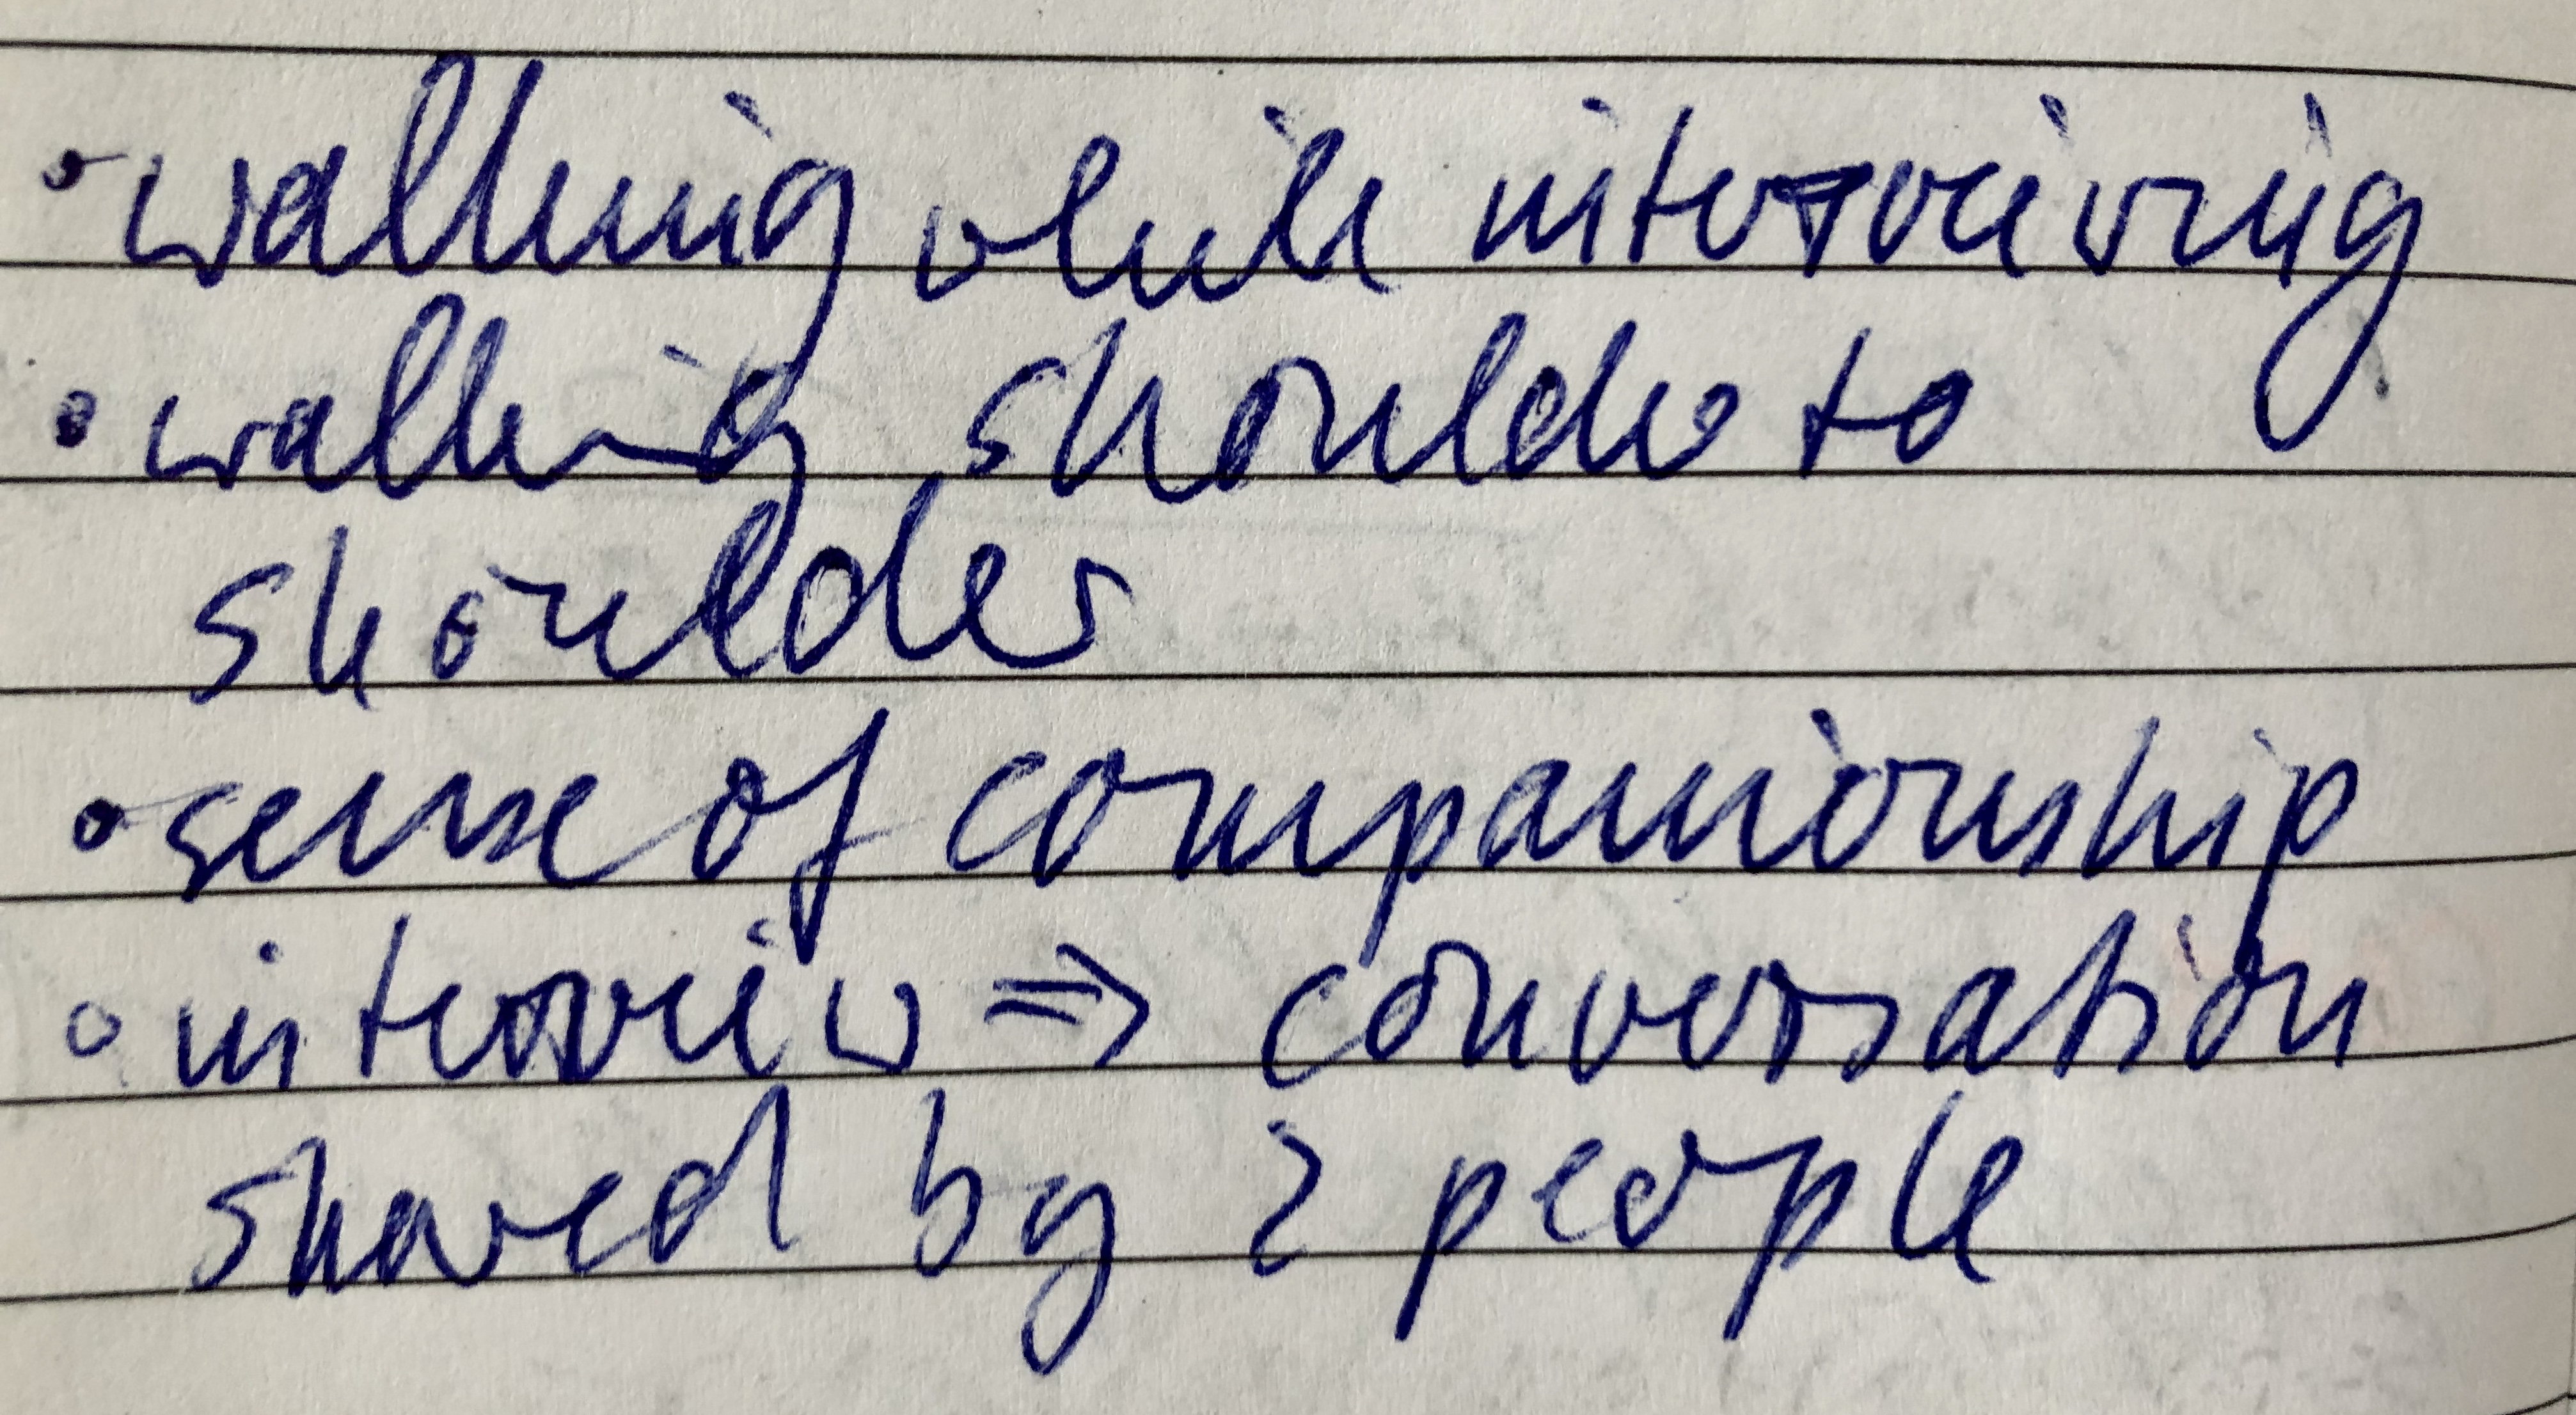 • walking while interveiwing
• walking shoulder to
shoulder
• sense of companionship
• interveiw => conversation
shared by 2 people